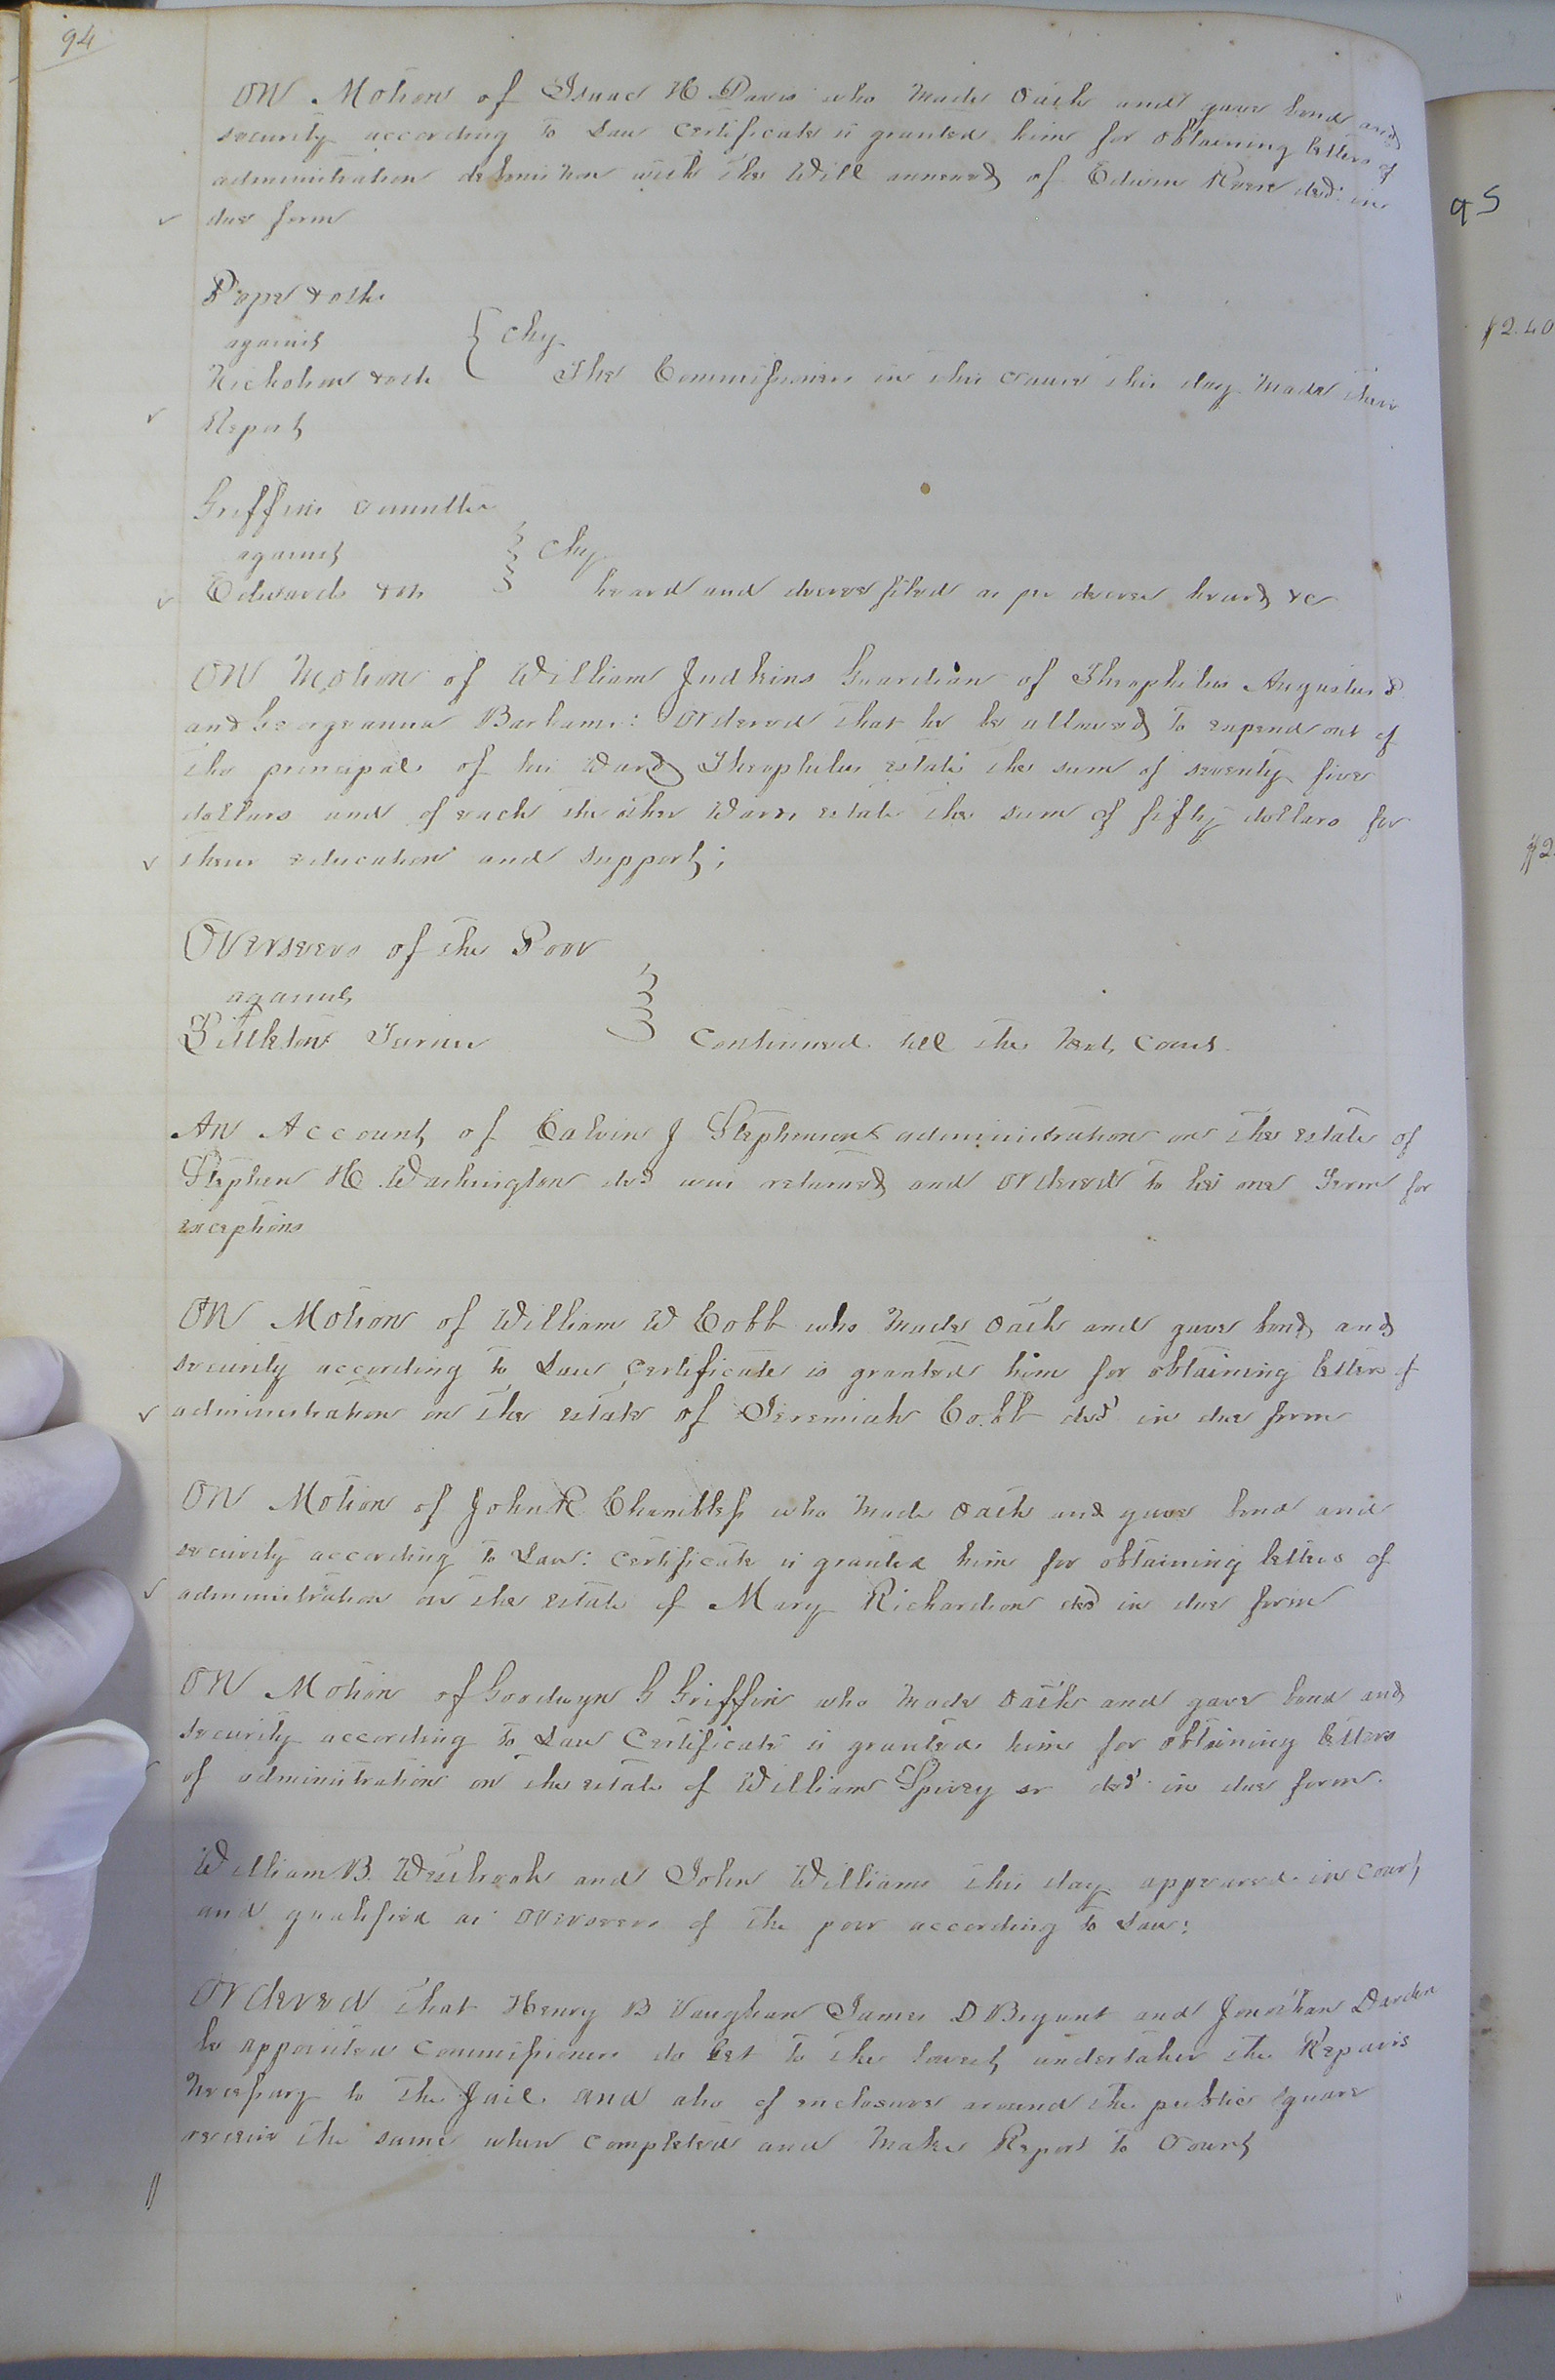 94
ON Motion of Isaac H Davis who made oath and gave bond and
security according to Law certificate is granted him for obtaining letters of
administration debonis non with the Will annexed of Edwin Rvere decd. in
due form
Pope & oths
against
Chy.
Nicholson & oth The Commissioners in this cause this day made their
Report
Griffin Committee
against
Chy.
Edwards & oth heard and decree filed as per decree heard &c
ON Motion of William Judkins Guardian of Theophilus Augustus
and Georgeanna Barham: Ordered that he be allowed to expend out of
the principal of his Ward Theophilus estate the sum of seventy five
dollars and of each the other Wards estate the sum of fifty dollars for
their education and support;
Overseers of the Poor
against
Littleton Turner Continued till the Next Court
AN Account of Calvin J Stephenson's administration on the estate of
Stephen H. Washington decd was returned and ordered to lie one Term for
exceptions
ON Motion of William W Cobb who made oath and gave bond and
security according to Law Certificate is granted him for obtaining letters of
administration on the estate of Jeremiah Cobb decd in due form
ON Motion of John R Chambless who made oath and gave bond and
security according to Law: certificate is granted him for obtaining letters of
administration on the estate of Mary Richardson decd in due form
ON Motion of Goodwyn G Griffin who made oath and gave bond and
security according to Law Certificate is granted him for obtaining letters
of administration on the estate of William Spivey sr decd. in due form.
William B. Westbrook and John Williams this day appeared in court
and qualified as overseers of the poor according to Law:
Ordered that Henry B Vaughan James D Bryant and Jonathan Darden
be appointed Commissioners do let to the lowest undertaker the Repairs
Necessary to the Jail and also of enclosure around the public square
receive the same when completed and make Report to Court
95
$2.40
$2